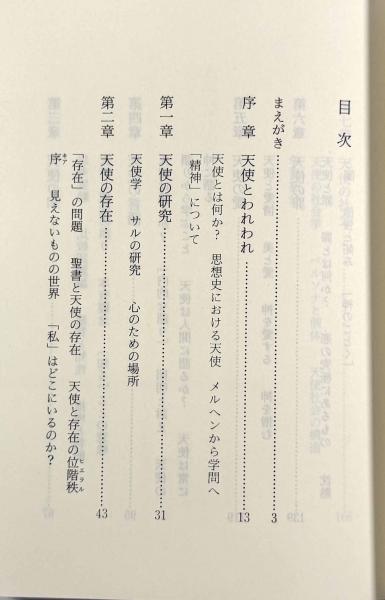 目次
まえがき……3
序章 天使とわれわれ……13
天使とは何か? 思想史における天使 メルヘンから学問へ
「精神」について
第一章 天使の研究……31
天使学 サルの研究 心のための場所
第二章 天使の存在……43
「存在」の問題 聖書と天使の存在 天使と存在の位階秩
序 見えないものの世界 「私」はどこにいるのか?